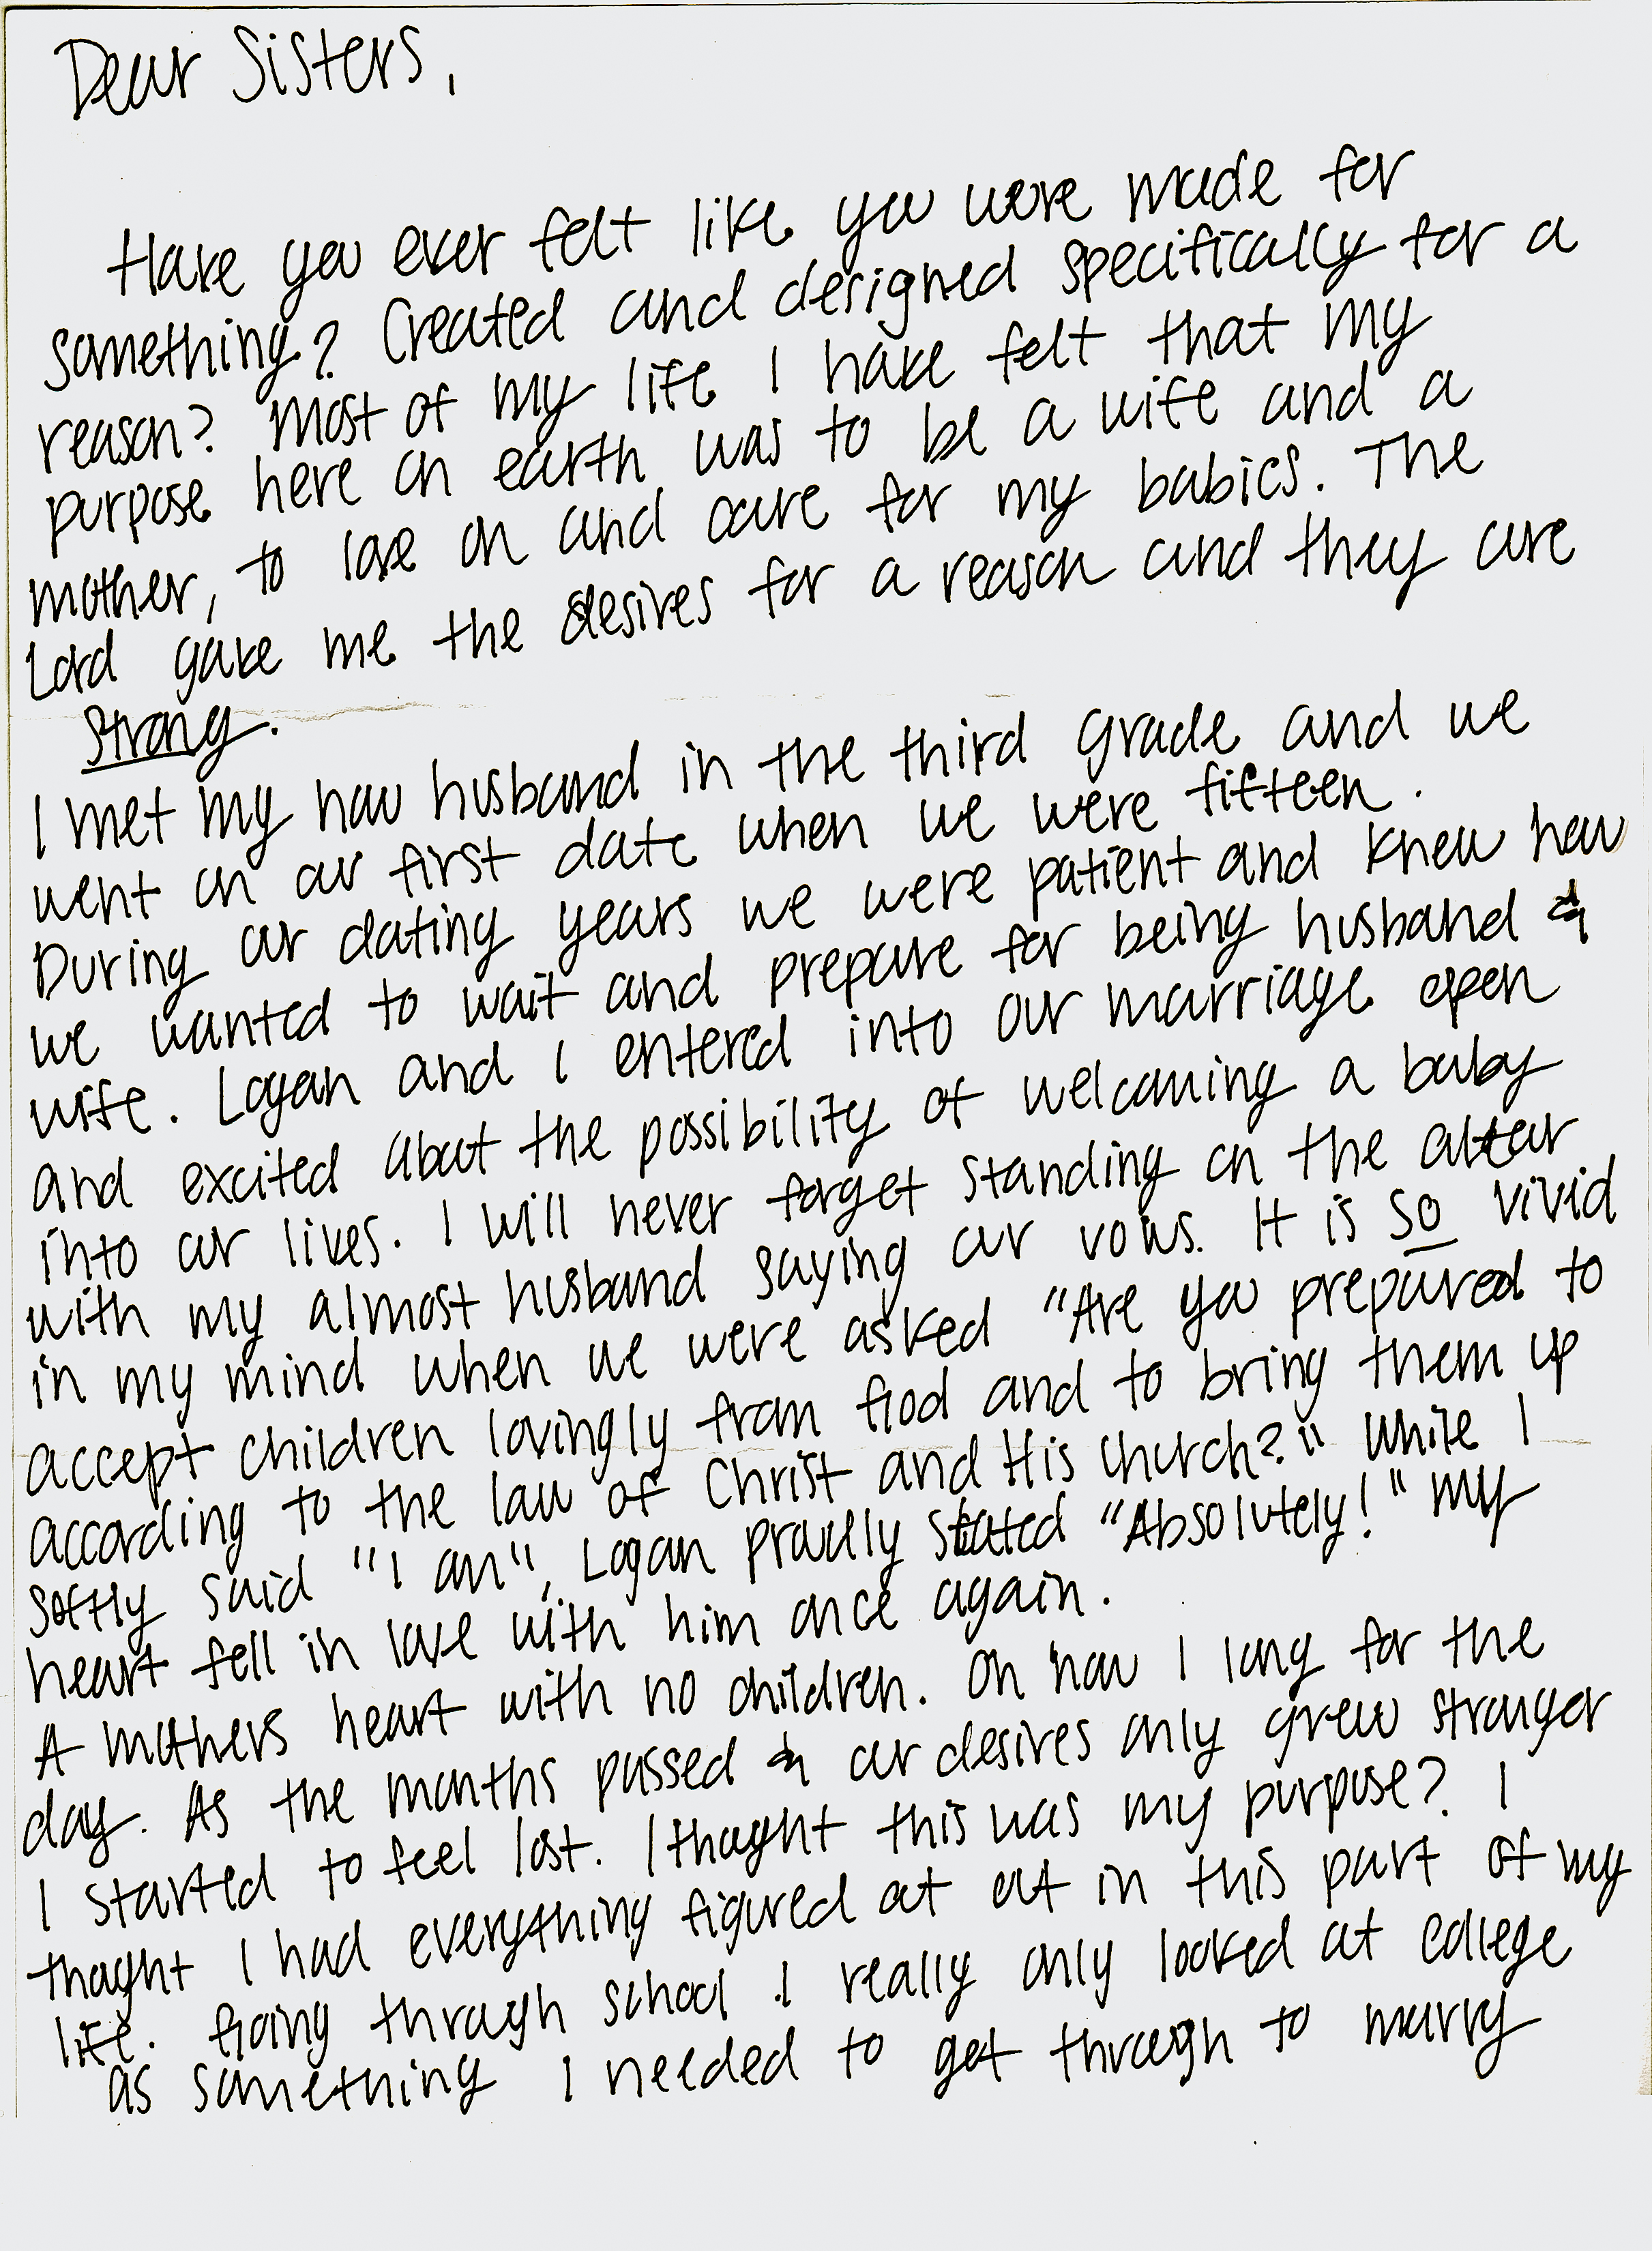 Dear Sisters,
Have you ever felt like you were made for
something? Created and designed specifically for a
reason? Most of my life I have felt that my
purpose here on earth was to be a wife and a
mother, to love on and care for my babies. The
Lord gave me the desires for a reason and they are
strong.
I met my now husband in the third grade and we
went on our first date when we were fifteen.
During our dating years we were patient and knew how
we wanted to wait and prepare for being husband &
wife. Logan and I entered into our marriage open
and excited about the possibility of welcoming a baby
into our lives. I will never forget standing on the altar
with my almost husband saying our vows. It is so vivid
in my mind when we were asked "Are you prepared to
accept children lovingly from God and to bring them up
according to the law of Christ and His Church?" While I
softly said "I am", Logan proudly stated "Absolutely!" My
heart fell in love with him once again.
A mothers heart with no children. Oh how I long for the
day. As the months passed & our desires only grew stronger
I started to feel lost. I thought this was my purpose? I
thought I had everything figured at out in this part of my
life. Going through school I really only looked at college
as something I needed to get through to marry